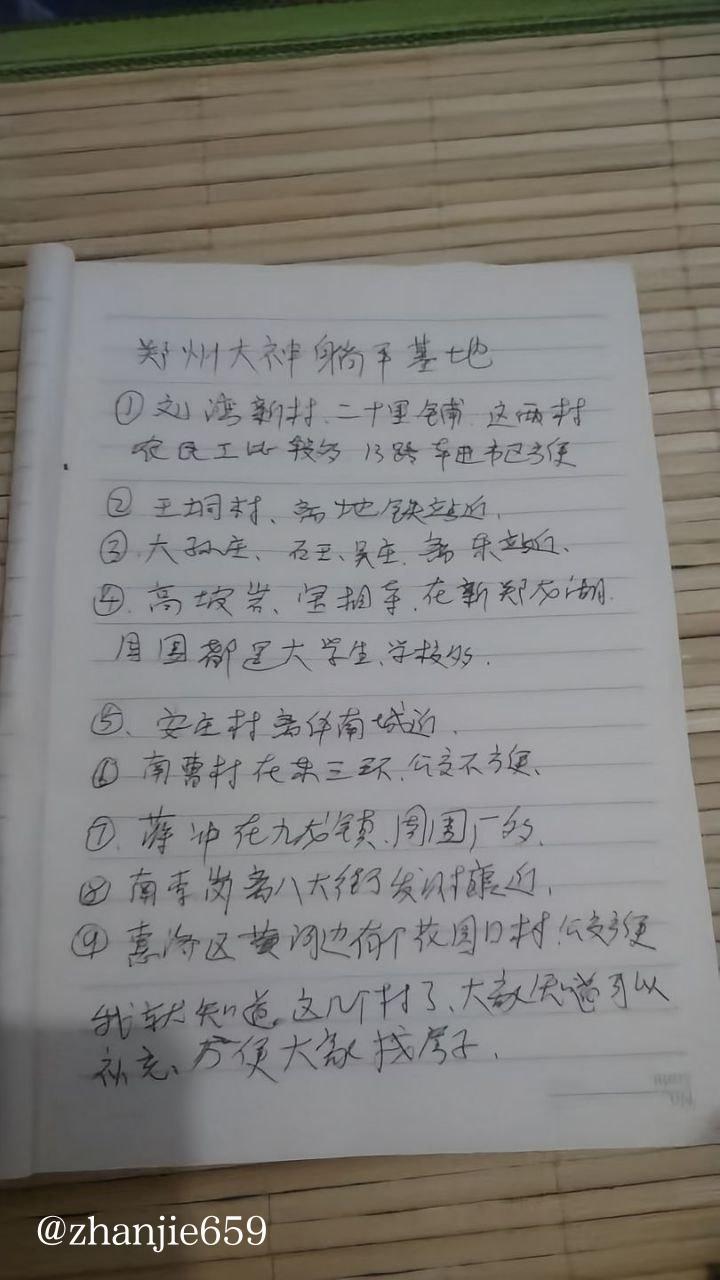 郑州大神躺平基地
①刘湾新村、二十里铺、这两村
农民工比较多 13路车进市区方便
②王垌村、离地铁站近、
③、大孙庄、石王、吴庄、离东站近、
④、高坡岩、宰相寺、在新郑龙湖、
周围都是大学生、学校多、
⑤、安庄村离华南城近、
⑥ 南曹村在东三环、公交不方便、
⑦、蒋冲在九龙镇、周围厂多、
⑧ 南李岗离八大街 近、
④ 惠济区黄河边有个花园口村、公交方便
我就知道这几个村了、大家知道可以
补充、方便大家找房子、
@zhanjie659